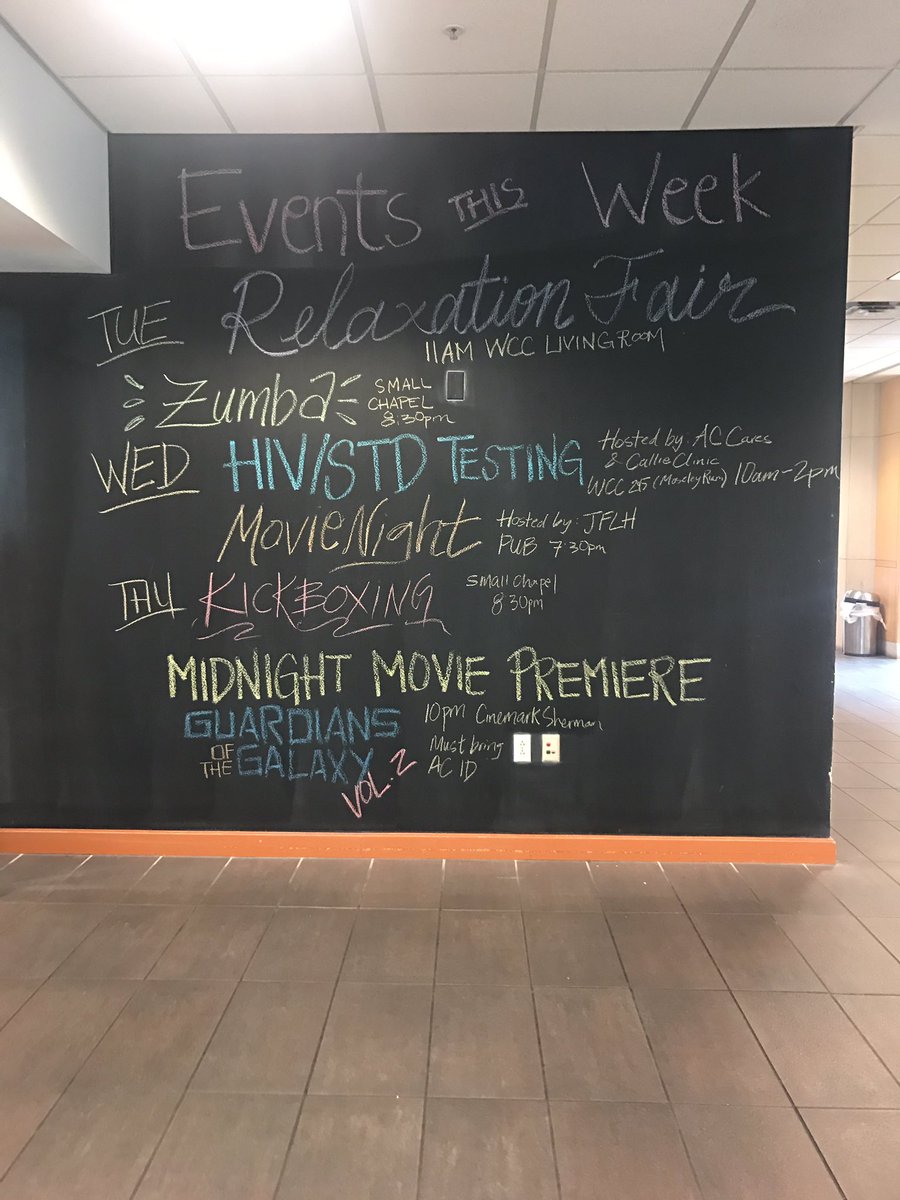 Events THIS Week
TUE Relaxation Fair
11AM WCC LIVING ROOM
Zumba SMALL
CHAPEL
8:30pm
WED HIV/STD TESTING Hosted by: AC Cares
& Callie Clinic
WCC 255 (Moseley Rm) 10am-2pm
Movie Night Hosted by: JFLH
PUB 7:30pm
THU KICKBOXING Small Chapel
8:30pm
MIDNIGHT MOVIE PREMIERE
GUARDIANS 10pm Cinemark Sherman
OF THE GALAXY Must bring
AC ID
VOL. 2